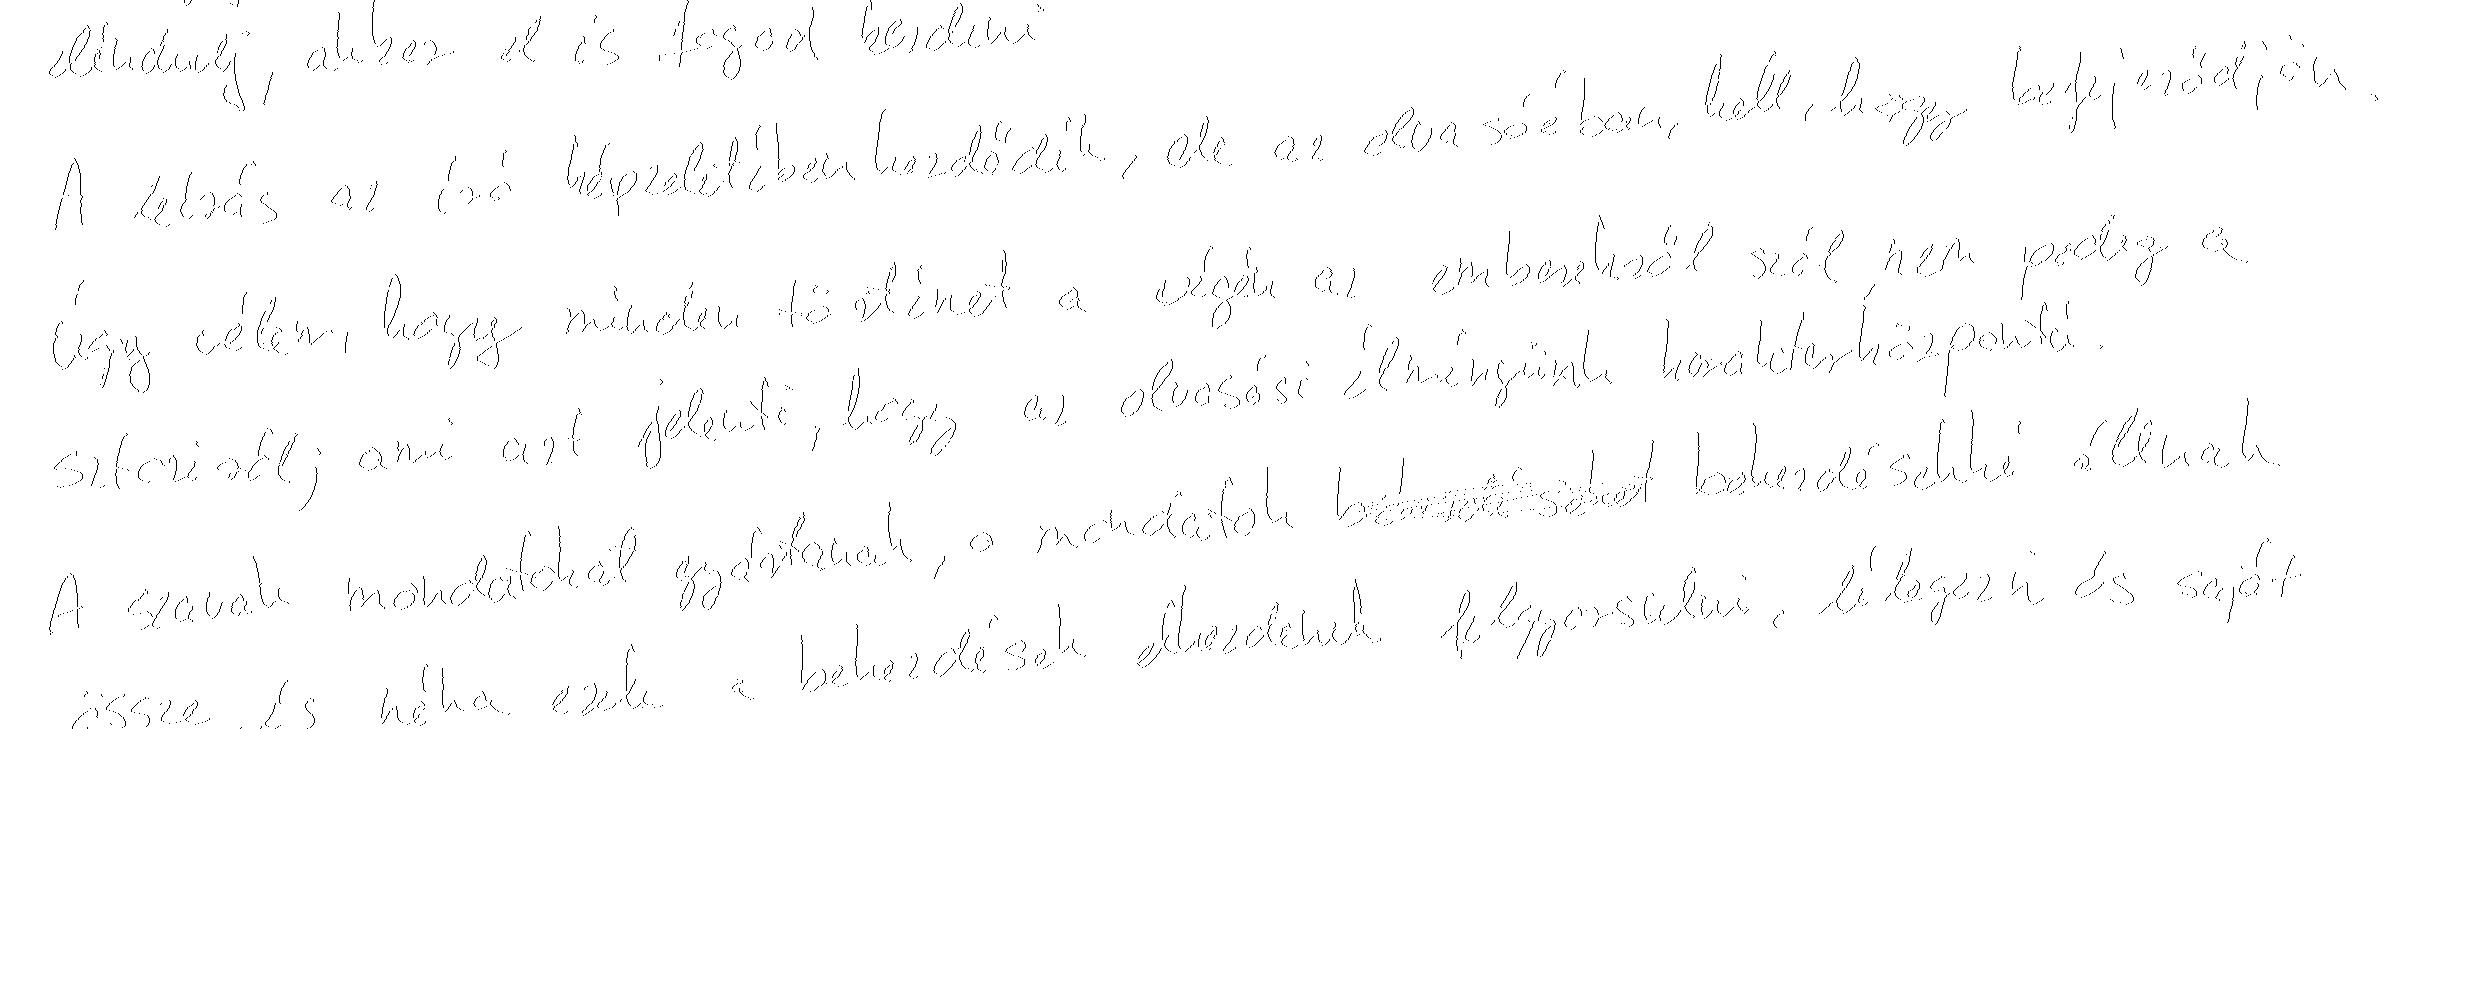 elindulj, akkor el is fogod kezdeni
A leírás az író képzeletében kezdődik, de az olvasóéban kell, hogy befejeződjön.
Úgy vélem, hogy minden történet a végén az emberekről szól, nem pedig a
sztoriról, ami azt jelenti, hogy az olvasási élményünk karakterközpontú.
A szavak mondatokat gyártanak, a mondatok bekezdésekké állnak
össze. És néha ezek a bekezdések elkezdenek felgyorsulni, lélegezni és saját